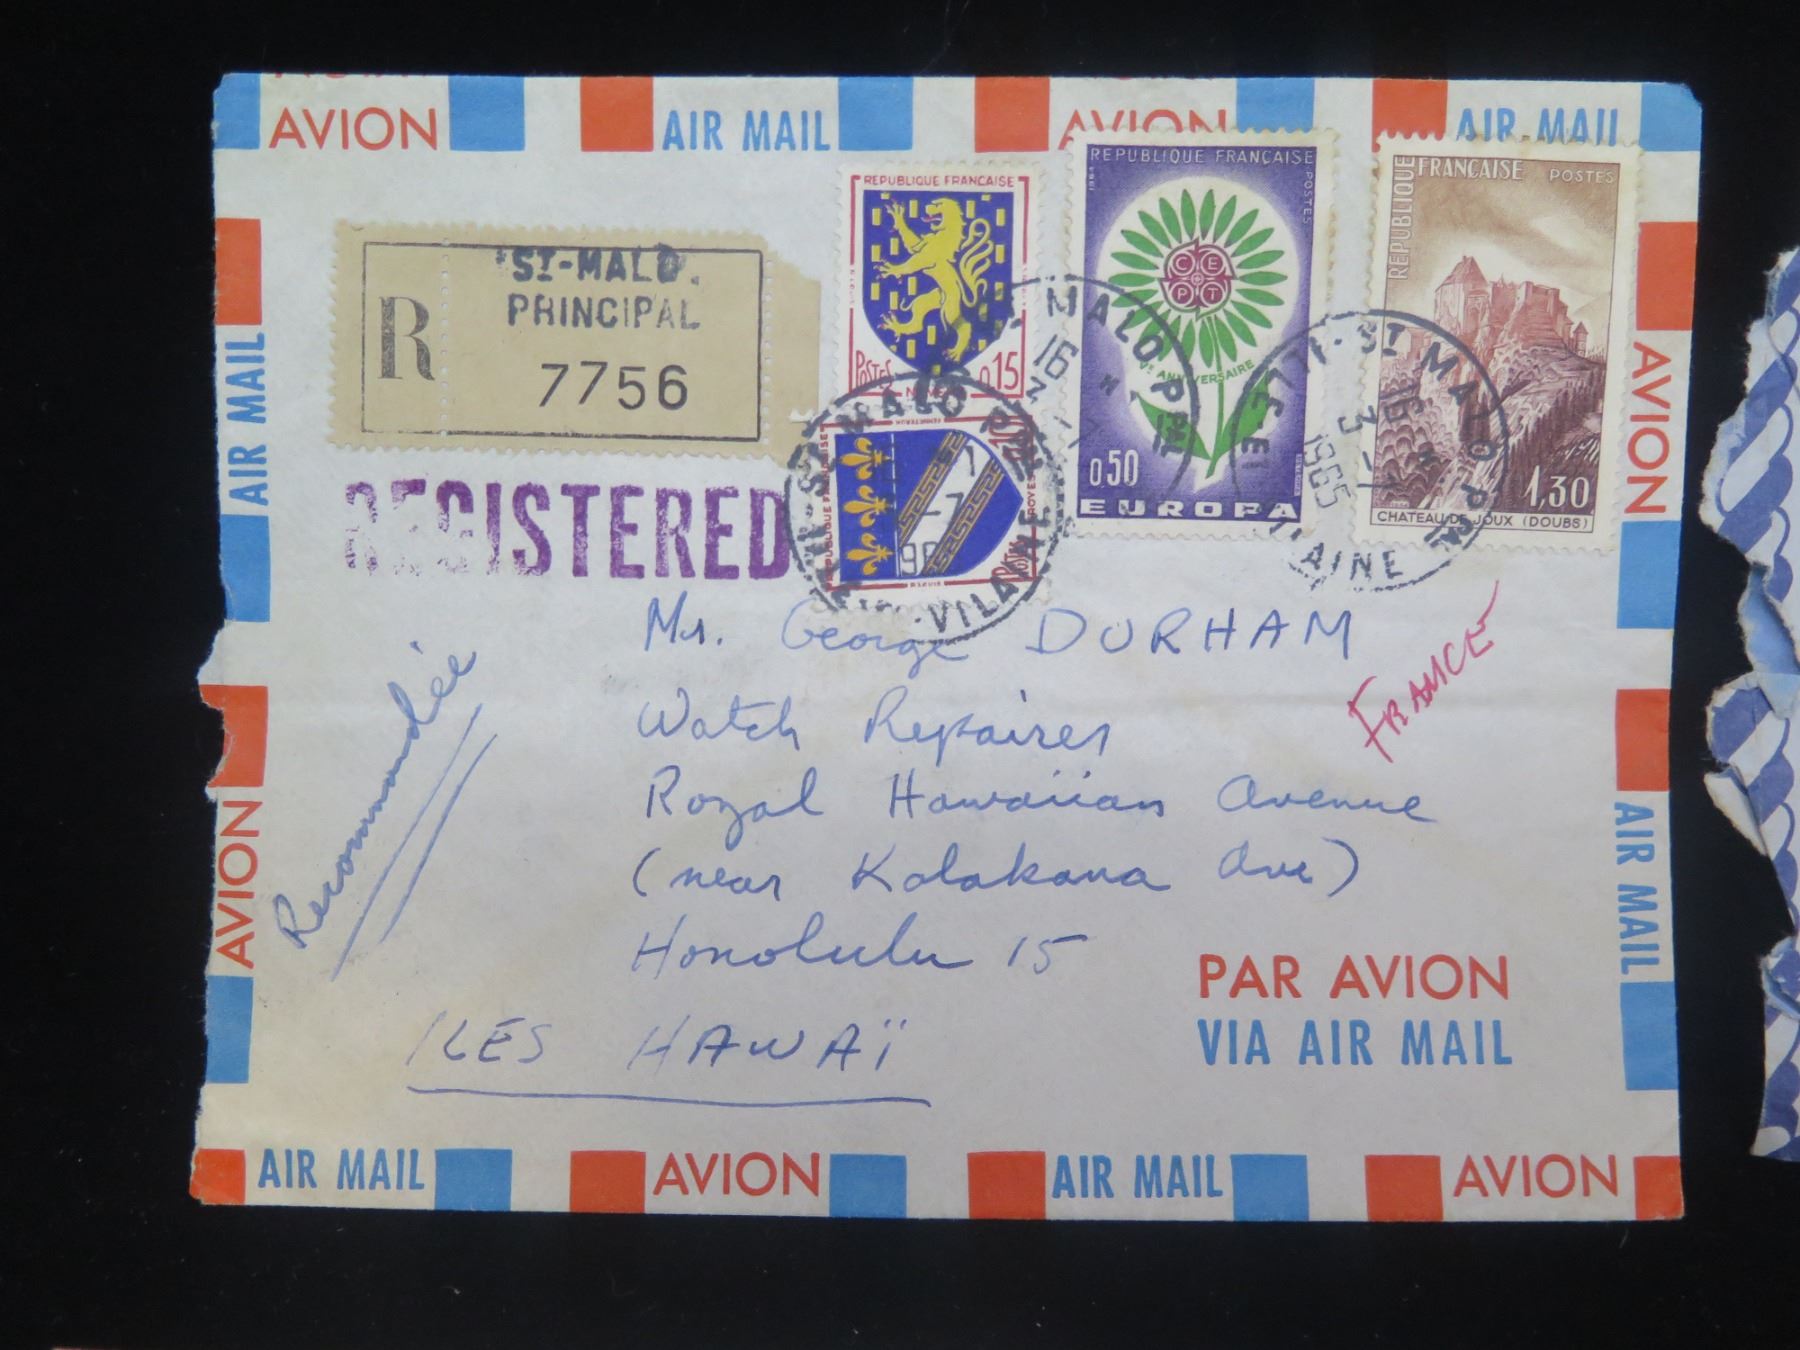 AVION AIR MAIL AVION AIR MAIL
REPUBLIQUE FRANÇAISE
POSTES 0,15
REPUBLIQUE FRANÇAISE
POSTES
1964
CEPT
Ve ANNIVERSAIRE
0,50
EUROPA
REPUBLIQUE FRANÇAISE POSTES
1,30
CHATEAU DE JOUX (DOUBS)
REPUBLIQUE FRANÇAISE
TROYES
ST MALO PPAL
16
ILLE-ET-VILAINE
ST MALO PPAL
16 H
ST MALO PPAL
16 H
3-7
1965
ILLE-ET-VILAINE
R
ST-MALO.
PRINCIPAL
7756
REGISTERED
Recommandée
FRANCE
Mr. George DURHAM
Watch Repairer
Royal Hawaiian Avenue
(near Kalakaua Ave)
Honolulu 15
ILES HAWAÏ
PAR AVION
VIA AIR MAIL
AIR MAIL
AVION
AVION
AIR MAIL
AIR MAIL AVION AIR MAIL AVION